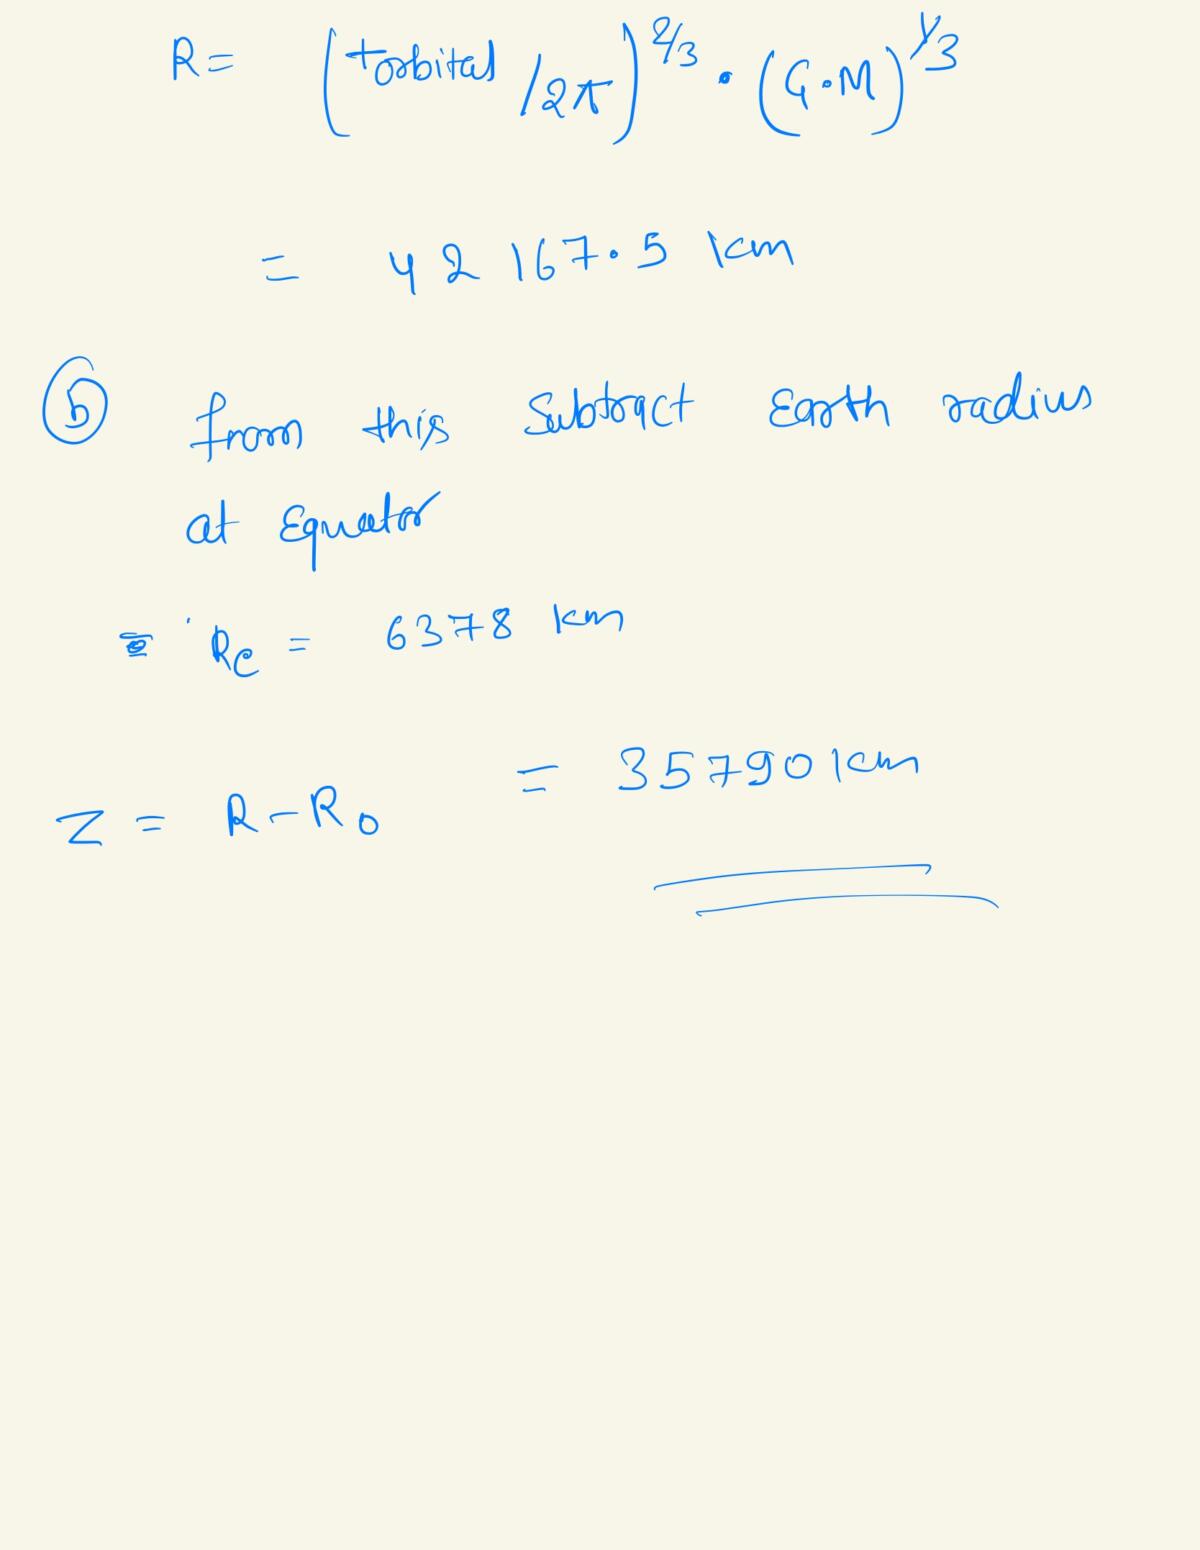 R = (torbital/2π)^2/3 · (G·M)^1/3
= 42167.5 km
b from this Subtract Earth radius
at Equator
Re = 6378 km
Z = R-R0 = 35790 km